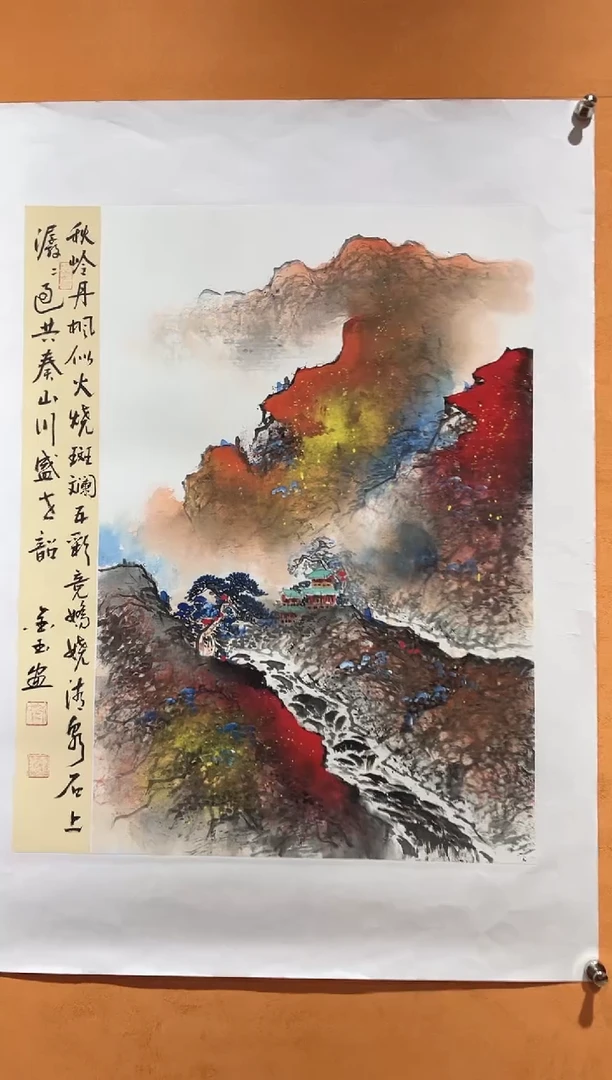 秋岭丹枫似火烧斑斓五彩竟娇娆清泉石上
潺潺过共奏山川盛世韶
金玉画